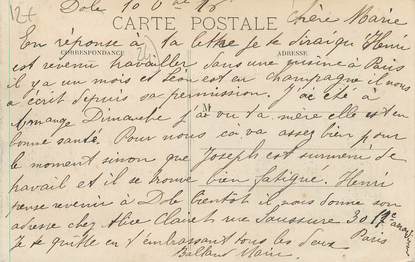 Dole 10 Xbre 16
Chère Marie
CARTE POSTALE
CORRESPONDANCE
ADRESSE
En réponse à ta lettre je te dirai qu Henri
est revenu travailler dans une usine à Paris
il y a un mois et Léon est en champagne il nous
a écrit depuis sa permission. J'ai été à
Dimanche j'ai vu ta mère elle est en
bonne santé. Pour nous ca va assez bien pour
le moment sinon que Joseph est surmené de
travail et il se trouve bien fatigué. Henri
pense revenir à Dole bientôt il vous donne son
adresse chez Alice rue Saussure 30 17e arr
Je te quitte en t'embrassant tous les deux Paris
Marie